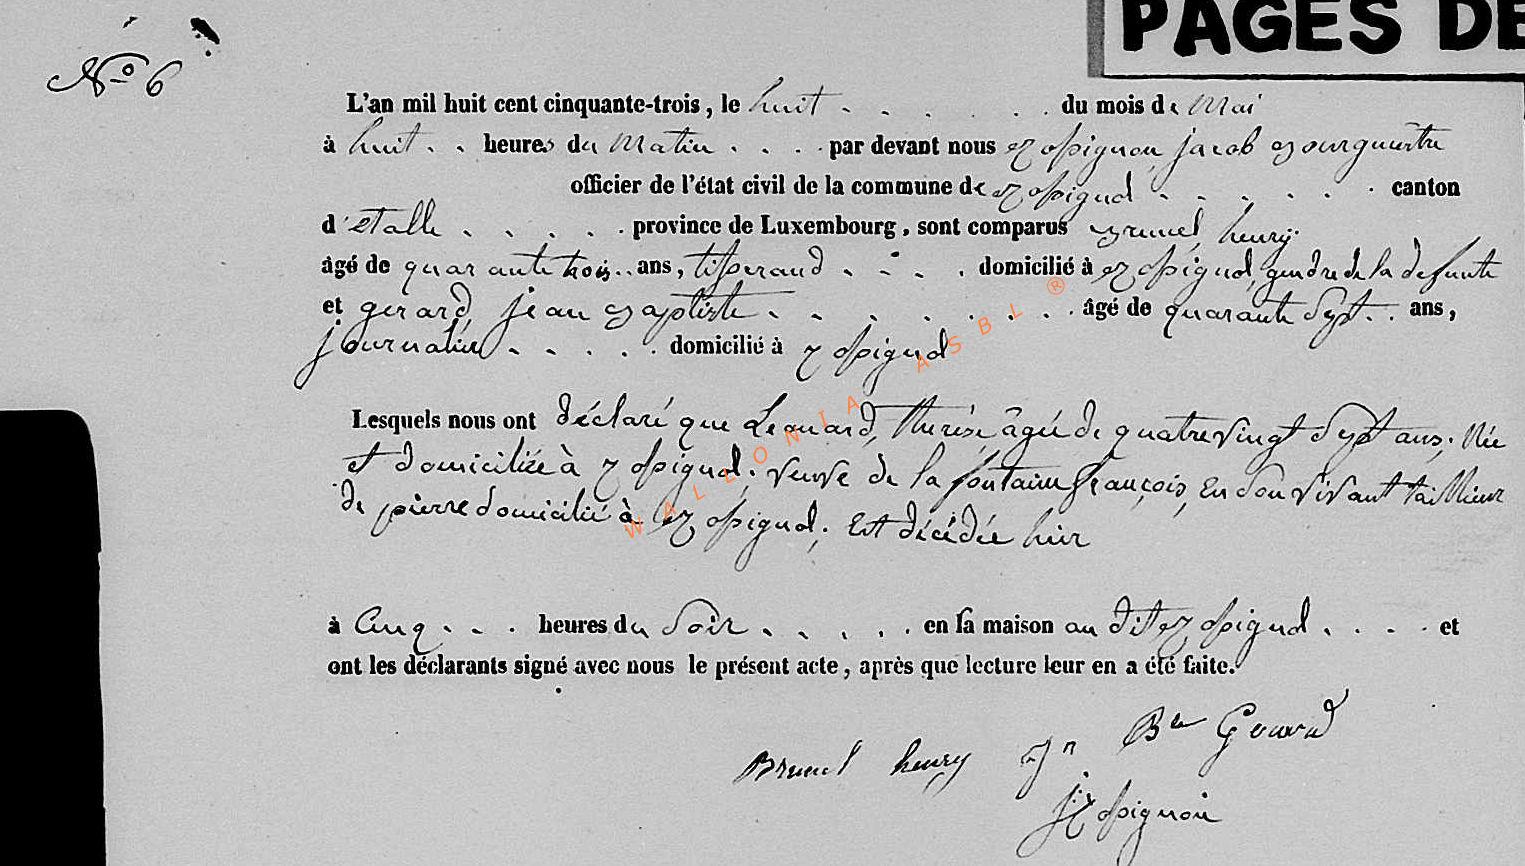 PAGES DE
N° 6
L'an mil huit cent cinquante-trois, le huit . . . . . . du mois de Mai
à huit . . heures du Matin . . . . par devant nous Rossignon, jacob Bourguêtre
officier de l'état civil de la commune de Rossignol . . . . . . canton
d'Etalle . . . . . province de Luxembourg, sont comparus Brunel, henry
âgé de quarante trois . . ans, tisserand . . . . domicilié à Rossignol, gendre de la defunte
et gerard, jean Baptiste . . . . . . . . âgé de quarante Sept . . ans,
journalier . . . . . domicilié à Rossignol
Lesquels nous ont déclaré que Leonard, thérèse, âgée de quatre vingt Sept ans, Née
et domiciliée à Rossignol, veuve de lafontaine françois, En Son vivant tailleur
de pierre domicilié à Rossignol, Est décédée hier
à Cinq . . . heures du Soir . . . . . en sa maison au dit Rossignol . . . . et
ont les déclarants signé avec nous le présent acte, après que lecture leur en a été faite.
Brunel henry Jn Bte Gerard
J Rossignon
WALLONIA ASBL ®